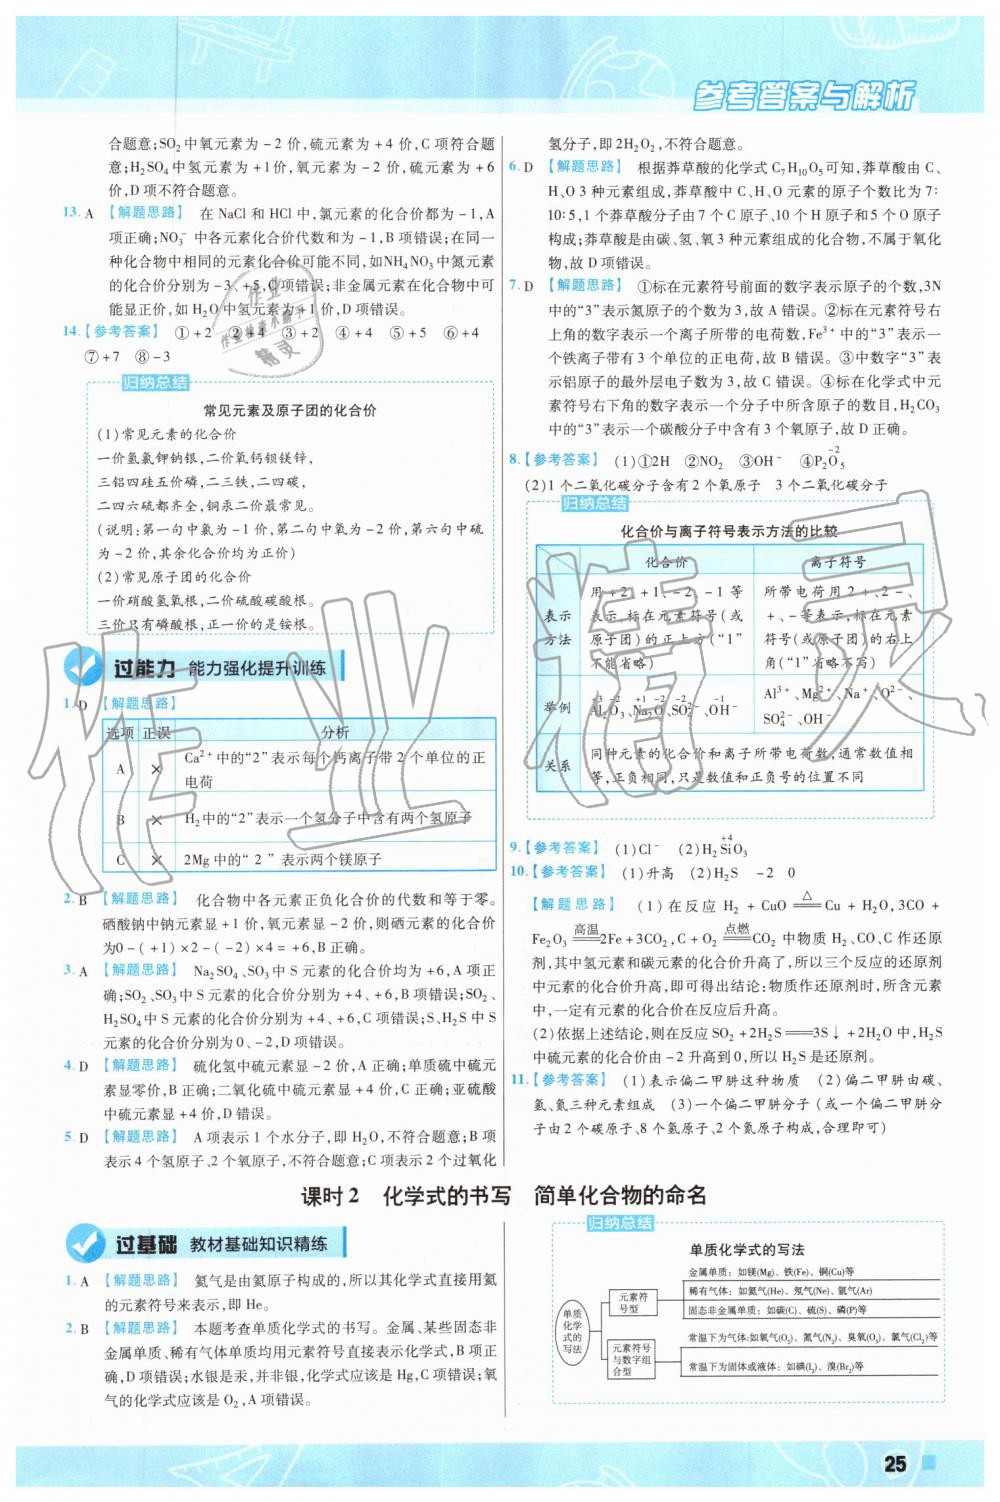 参考答案与解析
合题意;SO₂中氧元素为-2价,硫元素为+4价,C项符合题
意;H₂SO₄中氢元素为+1价,氧元素为-2价,硫元素为+6
价,D项不符合题意。
13. A 【解题思路】 在NaCl和HCl中,氯元素的化合价都为-1,A
项正确;NO₃⁻中各元素化合价代数和为-1,B项错误;在同一
种化合物中相同的元素化合价可能不同,如NH₄NO₃中氮元素
的化合价分别为-3、+5,C项错误;非金属元素在化合物中可
能显正价,如H₂O中氢元素为+1价,D项错误。
14.【参考答案】 ①+2 ②+4 ③+2 ④+4 ⑤+5 ⑥+4
⑦+7 ⑧-3
归纳总结
常见元素及原子团的化合价
(1)常见元素的化合价
一价氢氯钾钠银,二价氧钙钡镁锌,
三铝四硅五价磷,二三铁,二四碳,
二四六硫都齐全,铜汞二价最常见。
(说明:第一句中氯为-1价,第二句中氧为-2价,第六句中硫
为-2价,其余化合价均为正价)
(2)常见原子团的化合价
一价硝酸氢氧根,二价硫酸碳酸根。
三价只有磷酸根,正一价的是铵根。
过能力 能力强化提升训练
1. D 【解题思路】
选项 正误 分析
A × Ca²⁺中的“2”表示每个钙离子带2个单位的正
电荷
B × H₂中的“2”表示一个氢分子中含有两个氢原子
C × 2Mg中的“2”表示两个镁原子
2. B 【解题思路】 化合物中各元素正负化合价的代数和等于零。
硒酸钠中钠元素显+1价,氧元素显-2价,则硒元素的化合价
为0-(+1)×2-(-2)×4=+6,B正确。
3. A 【解题思路】 Na₂SO₄、SO₃中S元素的化合价均为+6,A项正
确;SO₂、SO₃中S元素的化合价分别为+4、+6,B项错误;SO₂、
H₂SO₄中S元素的化合价分别为+4、+6,C项错误;S、H₂S中S
元素的化合价分别为0、-2,D项错误。
4. D 【解题思路】 硫化氢中硫元素显-2价,A正确;单质硫中硫元
素显零价,B正确;二氧化硫中硫元素显+4价,C正确;亚硫酸
中硫元素显+4价,D错误。
5. D 【解题思路】 A项表示1个水分子,即H₂O,不符合题意;B项
表示4个氢原子、2个氧原子,不符合题意;C项表示2个过氧化
氢分子,即2H₂O₂,不符合题意。
6. D 【解题思路】 根据莽草酸的化学式C₇H₁₀O₅可知,莽草酸由C、
H、O 3种元素组成,莽草酸中C、H、O元素的原子个数比为7:
10:5,1个莽草酸分子由7个C原子、10个H原子和5个O原子
构成;莽草酸是由碳、氢、氧3种元素组成的化合物,不属于氧化
物,故D项错误。
7. D 【解题思路】 ①标在元素符号前面的数字表示原子的个数,3N
中的“3”表示氮原子的个数为3,故A错误。②标在元素符号右
上角的数字表示一个离子所带的电荷数,Fe³⁺中的“3”表示一
个铁离子带3个单位的正电荷,故B错误。③中数字“3”表
示铝原子的最外层电子数为3,故C错误。④标在化学式中元
素符号右下角的数字表示一个分子中所含原子的数目,H₂CO₃
中的“3”表示一个碳酸分子中含有3个氧原子,故D正确。
8.【参考答案】 (1)①2H ②NO₂ ③OH⁻ ④P₂O₅ (-2)
(2)1个二氧化碳分子含有2个氧原子 3个二氧化碳分子
归纳总结
化合价与离子符号表示方法的比较
化合价 离子符号
表示方法 用+2、+1、-2、-1等表示,标在元素符号(或原子团)的正上方(“1”不能省略) 所带电荷用2+、2-、+、-等表示,标在元素符号(或原子团)的右上角(“1”省略不写)
举例 +3 -2 +1 -2 -2 -1 Al₂O₃、Na₂O、SO₄²⁻、OH⁻ Al³⁺、Mg²⁺、Na⁺、O²⁻、SO₄²⁻、OH⁻
关系 同种元素的化合价和离子所带电荷数,通常数值相等,正负相同,只是数值和正负号的位置不同
9.【参考答案】 (1)Cl⁻ (2)H₂SiO₃ (+4)
10.【参考答案】 (1)升高 (2)H₂S -2 0
【解题思路】 (1)在反应H₂+CuO=△=Cu+H₂O,3CO+
Fe₂O₃=高温=2Fe+3CO₂,C+O₂=点燃=CO₂中物质H₂、CO、C作还原
剂,其中氢元素和碳元素的化合价升高了,所以三个反应的还原剂
中元素的化合价升高,即可得出结论:物质作还原剂时,所含元素
中,一定有元素的化合价在反应后升高。
(2)依据上述结论,则在反应SO₂+2H₂S=3S↓+2H₂O中,H₂S
中硫元素的化合价由-2升高到0,所以H₂S是还原剂。
11.【参考答案】 (1)表示偏二甲肼这种物质 (2)偏二甲肼由碳、
氢、氮三种元素组成 (3)一个偏二甲肼分子(或一个偏二甲肼分
子由2个碳原子、8个氢原子、2个氮原子构成,合理即可)
课时2 化学式的书写 简单化合物的命名
过基础 教材基础知识精练
1. A 【解题思路】 氦气是由氦原子构成的,所以其化学式直接用氦
的元素符号来表示,即He。
2. B 【解题思路】 本题考查单质化学式的书写。金属、某些固态非
金属单质、稀有气体单质均用元素符号直接表示化学式,B项正
确,D项错误;水银是汞,并非银,化学式应该是Hg,C项错误;氧
气的化学式应该是O₂,A项错误。
归纳总结
单质化学式的写法
单质化学式的写法
元素符号型
金属单质:如镁(Mg)、铁(Fe)、铜(Cu)等
稀有气体:如氦气(He)、氖气(Ne)、氩气(Ar)
固态非金属单质:如碳(C)、硫(S)、磷(P)等
元素符号与数字组合型
常温下为气体:如氧气(O₂)、氮气(N₂)、臭氧(O₃)、氯气(Cl₂)等
常温下为固体或液体:如碘(I₂)、溴(Br₂)等
25
作业精灵